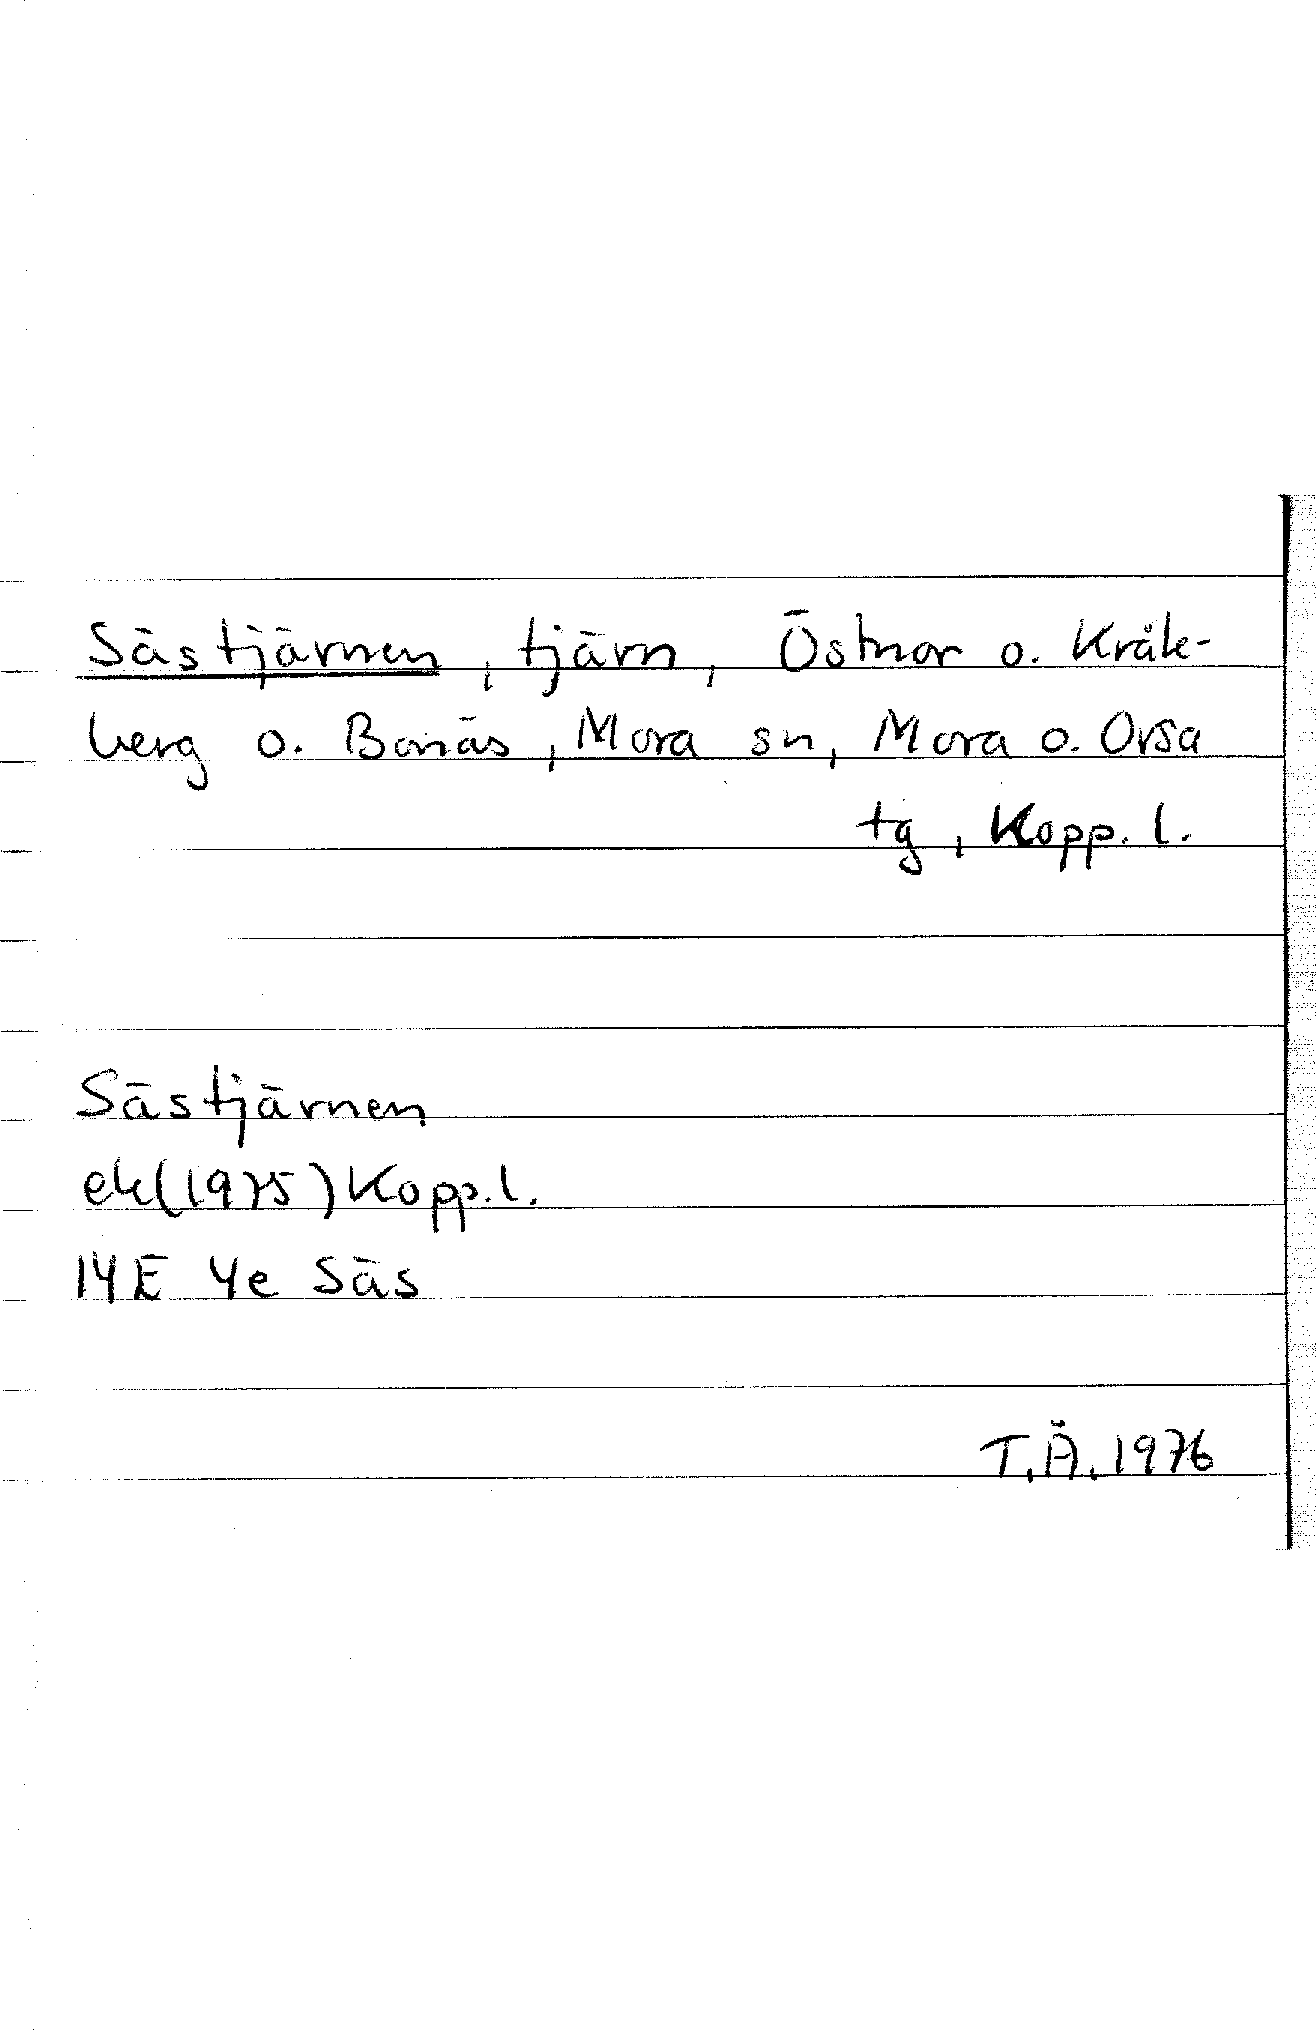 Sästjärnen, tjärn, Östnor o. Kråk-
berg o. Bonäs, Mora sn, Mora o. Orsa
tg, Kopp. l.
Sästjärnen
ek(1975)Kopp.l.
14E 4e Säs
T.Ä.1976